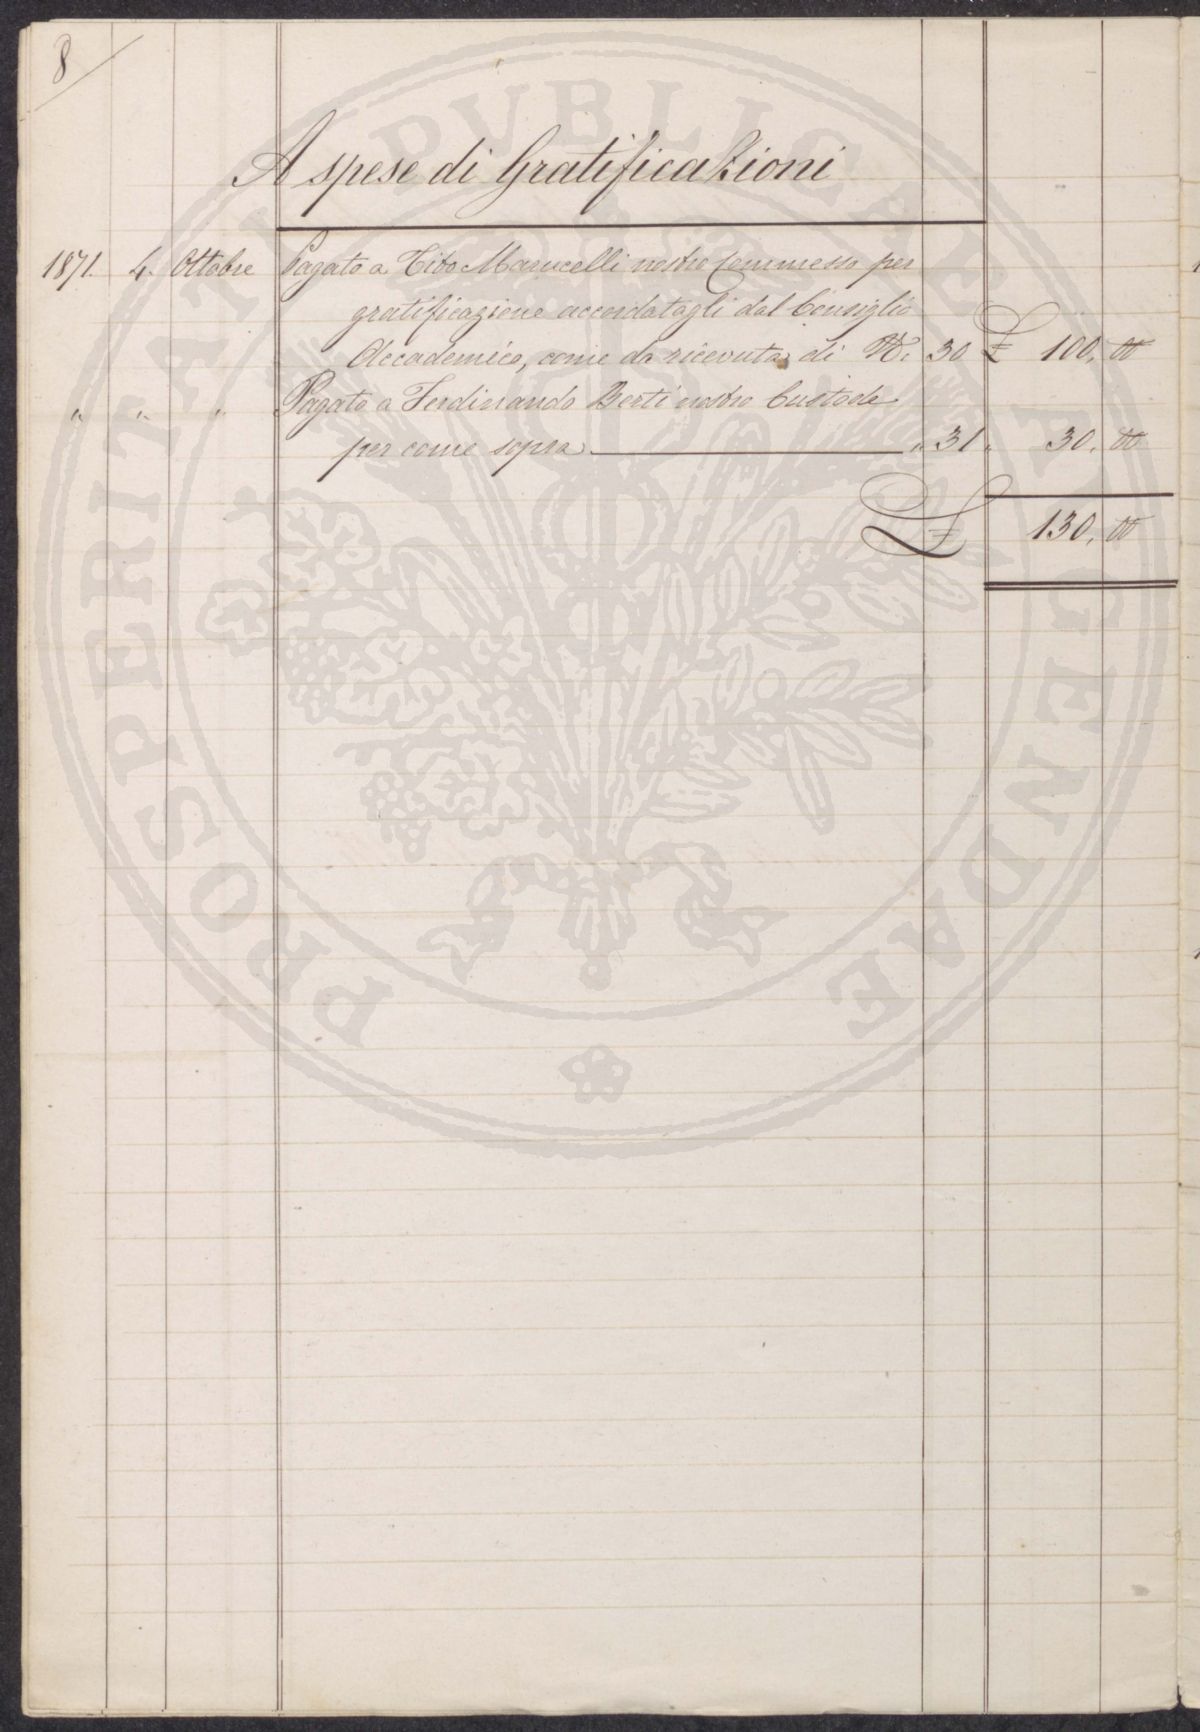 8
A spese di Gratificazioni
1871. 4. Ottobre Pagato a Tito Marucelli nostro Commesso per
gratificazione accordatagli dal Consiglio
Accademico, come da ricevuta di N.° 30 £ 100, 00
" " " Pagato a Ferdinando Berti nostro Custode
per come sopra " 31 " 30, 00
£ 130, 00
PROSPERITATI PUBLICAE AUGENDAE